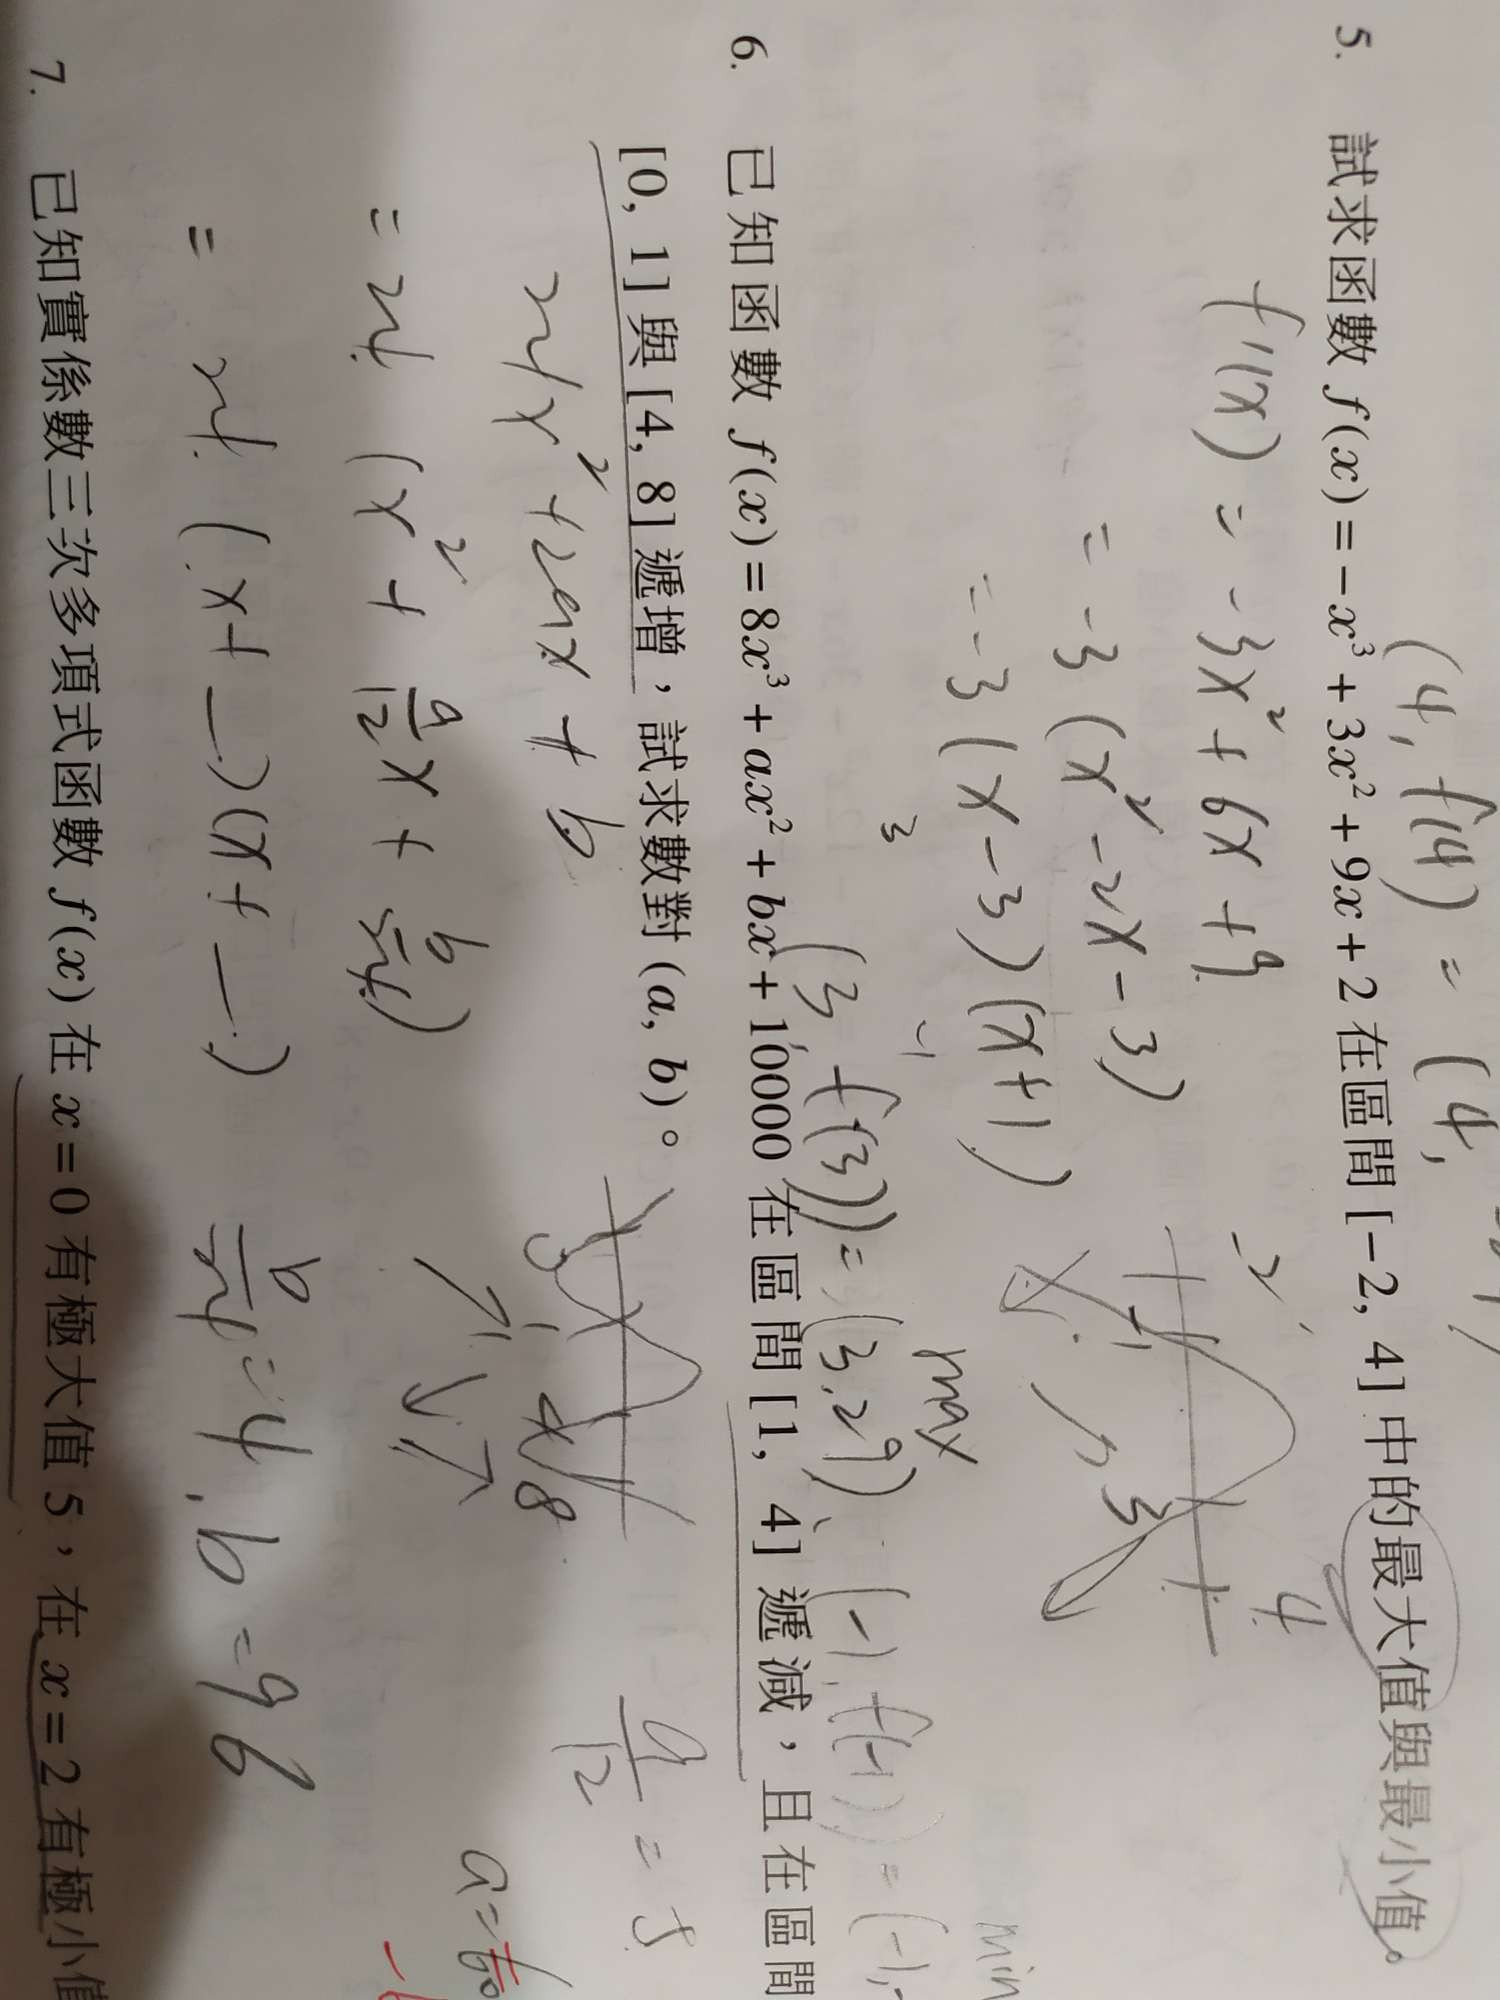 (4, f(4) = (4,
5. 試求函數 f(x) = -x³ + 3x² + 9x + 2 在區間 [-2, 4] 中的最大值與最小值。
f'(x) = -3x² + 6x + 9
-2
4
= -3 (x² - 2x - 3)
-1
3
= -3 (x - 3) (x + 1)
3
-1
max
min
(3, f(3)) = (3, 29)
(-1, f(-1)) = (-1,
6. 已知函數 f(x) = 8x³ + ax² + bx + 10000 在區間 [1, 4] 遞減，且在區間
[0, 1] 與 [4, 8] 遞增，試求數對 (a, b)。
24x² + 2ax + b
0 1 4 8
a/12 = 5
= 24 (x² + a/12 x + b/24)
a =
= 24 (x + __) (x + __)
b/24 = 4, b = 96
7. 已知實係數三次多項式函數 f(x) 在 x = 0 有極大值 5，在 x = 2 有極小值